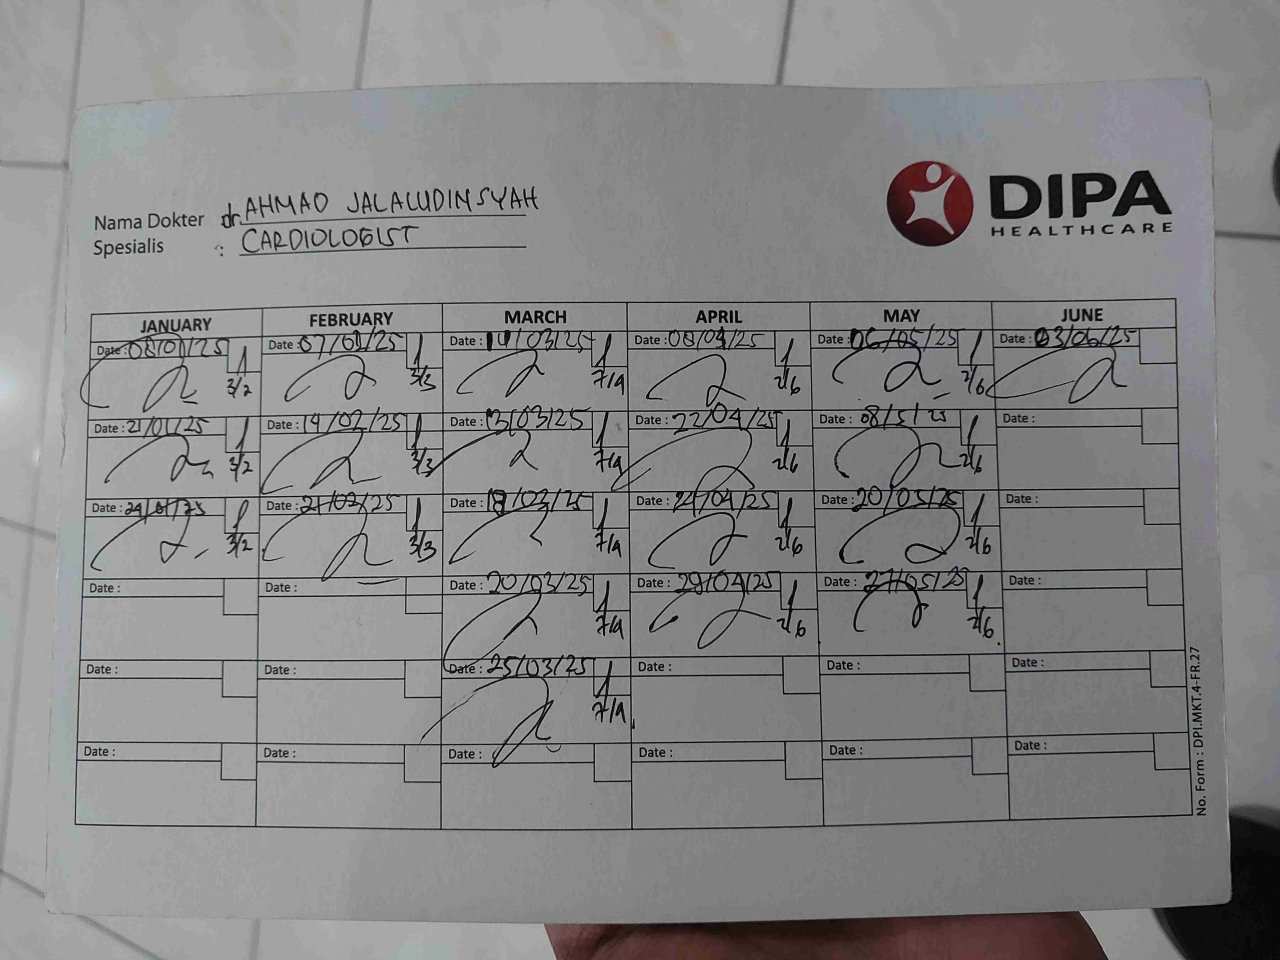 DIPA
HEALTHCARE
Nama Dokter dr. AHMAD JALALUDINSYAH
Spesialis : CARDIOLOGIST
JANUARY FEBRUARY MARCH APRIL MAY JUNE
Date : 08/01/25 Date : 07/02/25 Date : 11/03/25 Date : 08/04/25 Date : 06/05/25 Date : 03/06/25
3/2 3/3 7/4 2/6 2/6
Date : 21/01/25 Date : 14/02/25 Date : 13/03/25 Date : 22/04/25 Date : 08/5/25 Date :
3/2 3/3 7/4 2/6 2/6
Date : 24/01/25 Date : 21/02/25 Date : 18/03/25 Date : 24/04/25 Date : 20/05/25 Date :
3/2 3/3 7/4 2/6 2/6
Date : Date : Date : 20/03/25 Date : 29/04/25 Date : 27/05/25 Date :
7/4 2/6 2/6
Date : Date : Date : 25/03/25 Date : Date : Date :
7/4
Date : Date : Date : Date : Date : Date :
No. Form : DPI.MKT.4-FR.27